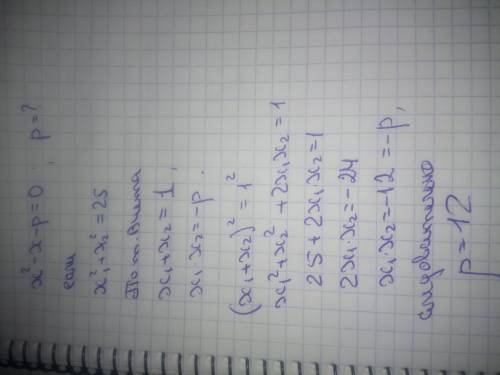 x²-x-p=0; p=?
если
x₁²+x₂²=25
По т. Виета
x₁+x₂=1,
x₁·x₂=-p.
(x₁+x₂)²=1²
x₁²+x₂²+2x₁x₂=1
25+2x₁x₂=1
2x₁·x₂=-24
x₁·x₂=-12=-p,
следовательно
p=12